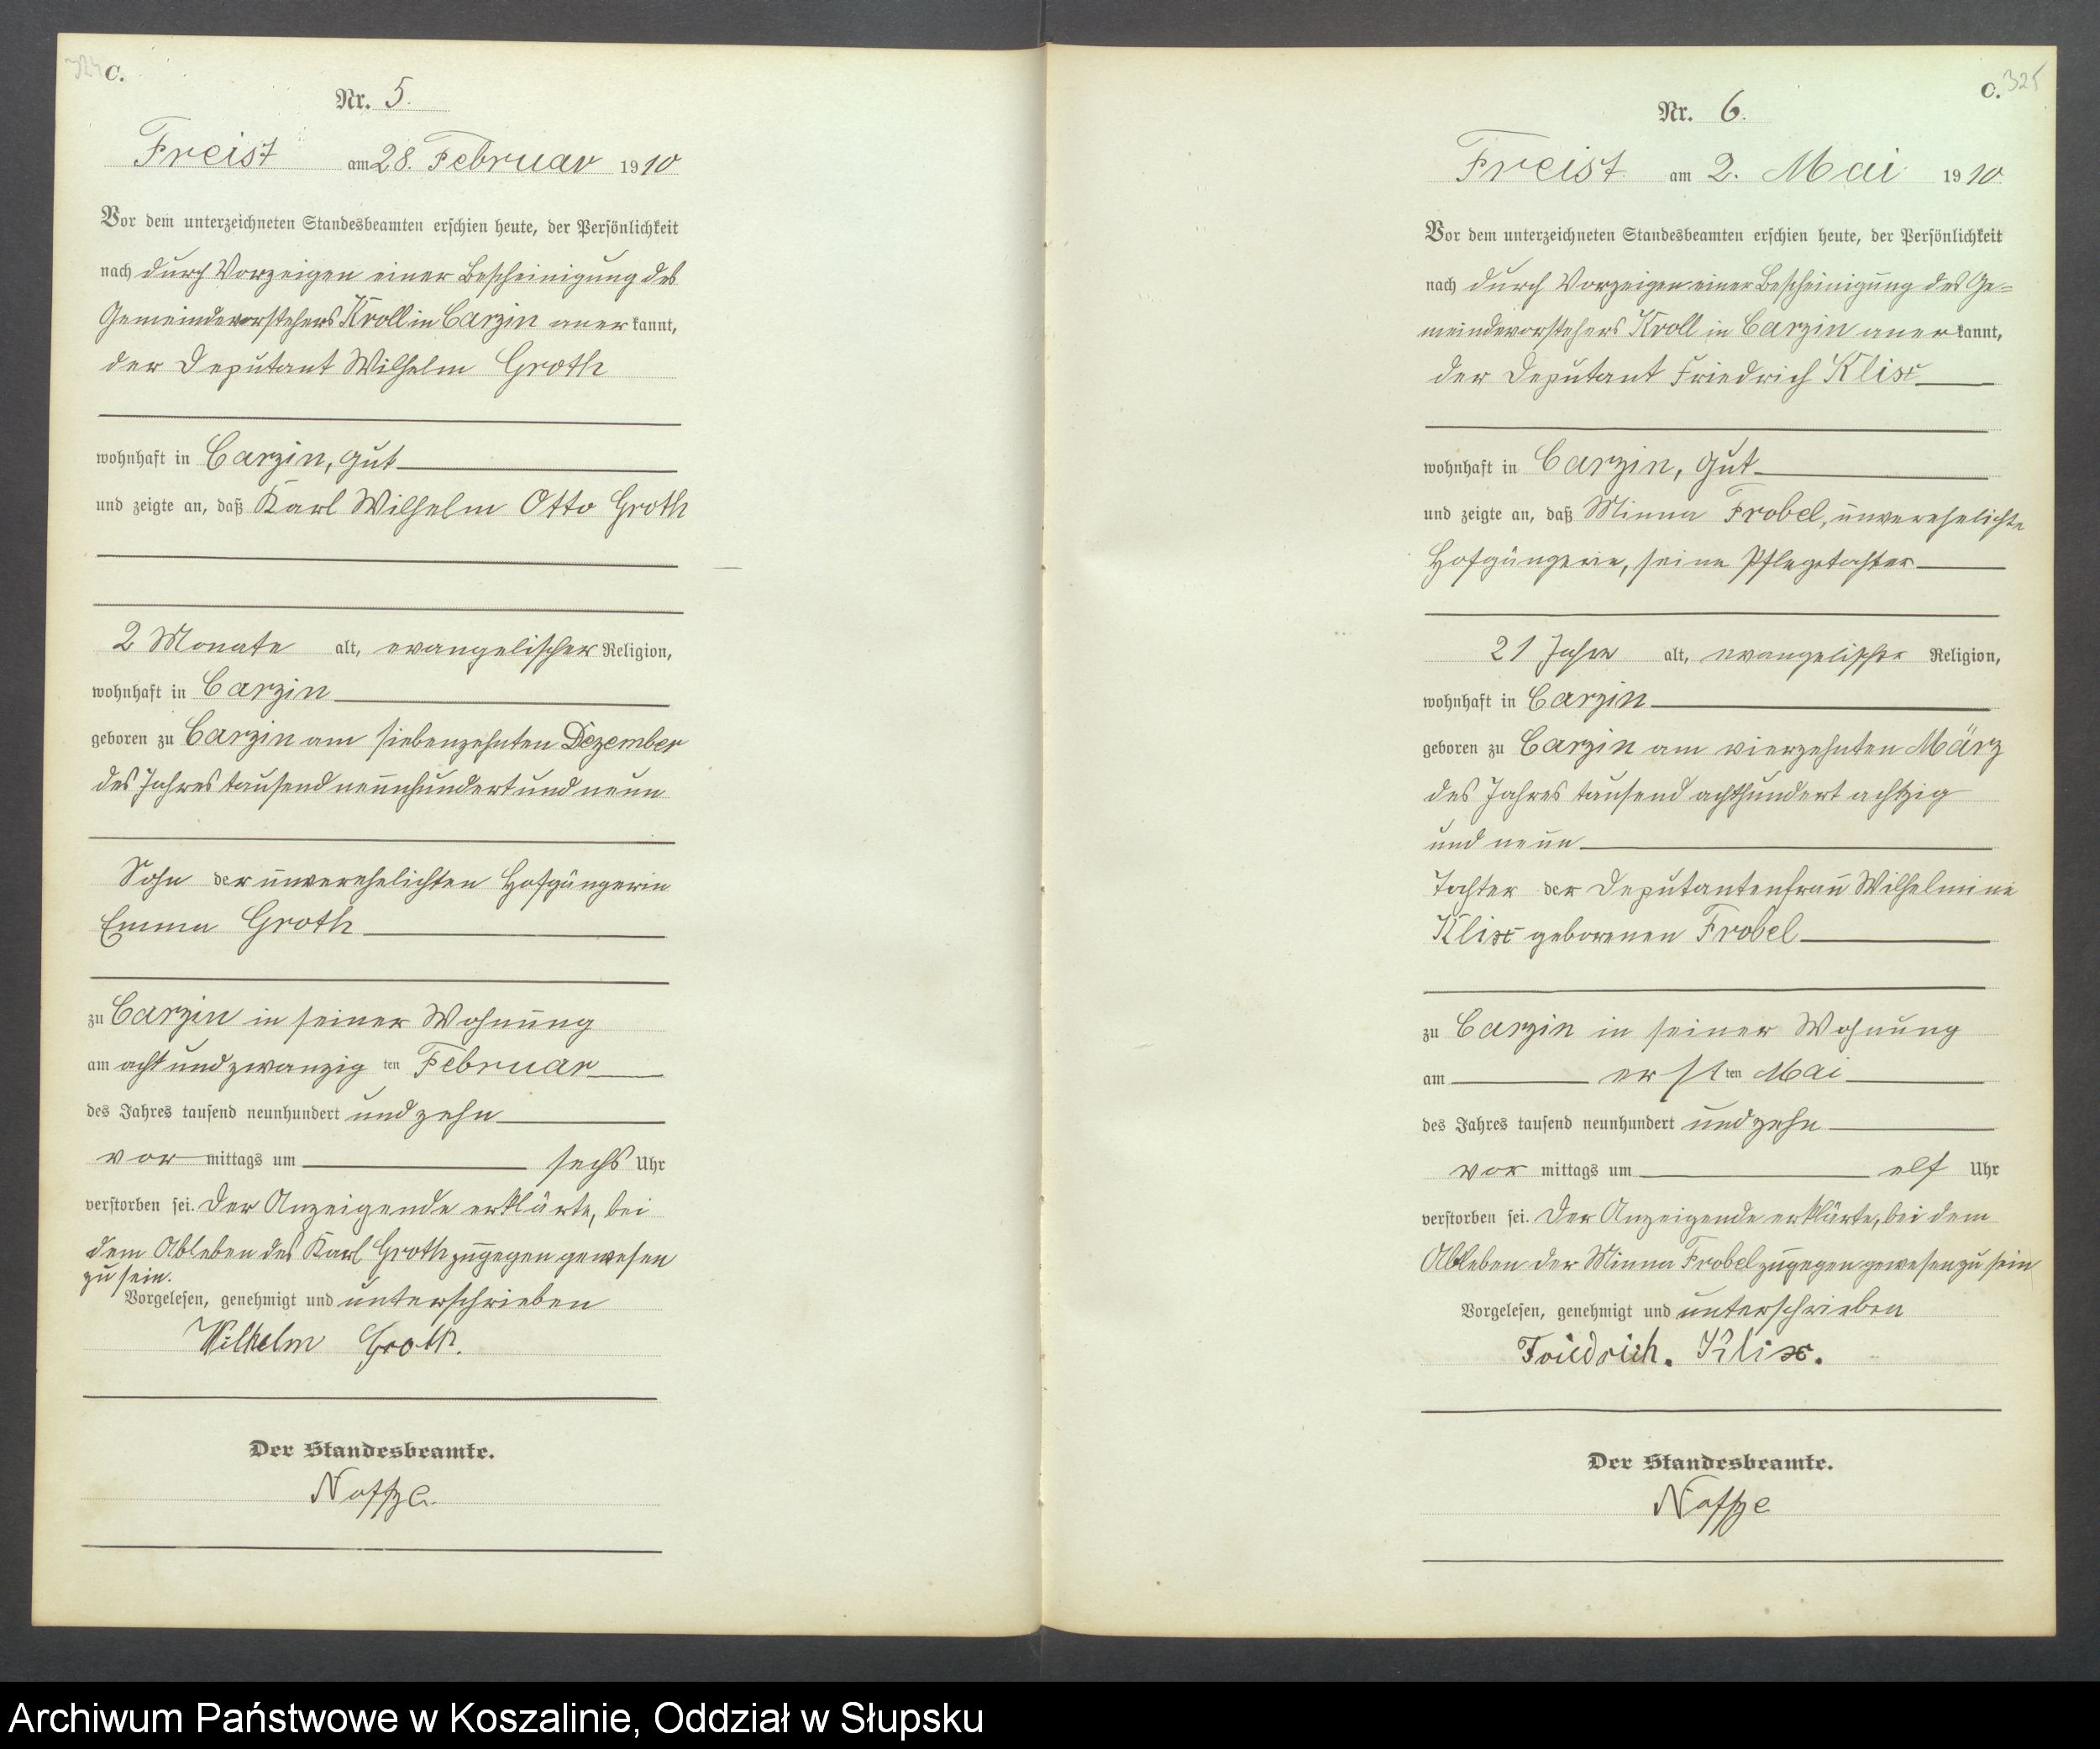 324 C.
Nr. 5.
Freist am 28. Februar 1910
Vor dem unterzeichneten Standesbeamten erschien heute, der Persönlichkeit
nach durch Vorzeigen einer Bescheinigung des
Gemeindevorstehers Kroll in Carzin anerkannt,
der Deputant Wilhelm Groth
wohnhaft in Carzin, Gut
und zeigte an, daß Karl Wilhelm Otto Groth
2 Monate alt, evangelischer Religion,
wohnhaft in Carzin
geboren zu Carzin am siebenzehnten Dezember
des Jahres tausend neunhundert und neun
Sohn der unverehelichten Hofgängerin
Emma Groth
zu Carzin in seiner Wohnung
am acht und zwanzig ten Februar
des Jahres tausend neunhundert und zehn
vor mittags um sechs Uhr
verstorben sei. Der Anzeigende erklärte, bei
dem Ableben des Karl Groth zugegen gewesen
zu sein.
Vorgelesen, genehmigt und unterschrieben
Wilhelm Groth.
Der Standesbeamte.
Noffze.
C. 325
Nr. 6.
Freist am 2. Mai 1910
Vor dem unterzeichneten Standesbeamten erschien heute, der Persönlichkeit
nach durch Vorzeigen einer Bescheinigung des Ge=
meindevorstehers Kroll in Carzin anerkannt,
der Deputant Friedrich Klix
wohnhaft in Carzin, Gut
und zeigte an, daß Minna Frobel, unverehelichte
Hofgängerin, seine Pflegetochter
21 Jahre alt, evangelischer Religion,
wohnhaft in Carzin
geboren zu Carzin am vierzehnten März
des Jahres tausend achthundert achtzig
und neun
Tochter der Deputantenfrau Wilhelmine
Klix geborenen Frobel
zu Carzin in seiner Wohnung
am ersten Mai
des Jahres tausend neunhundert und zehn
vor mittags um elf Uhr
verstorben sei. Der Anzeigende erklärte, bei dem
Ableben der Minna Frobel zugegen gewesen zu sein
Vorgelesen, genehmigt und unterschrieben
Friedrich. Klix.
Der Standesbeamte.
Noffze
Archiwum Państwowe w Koszalinie, Oddział w Słupsku